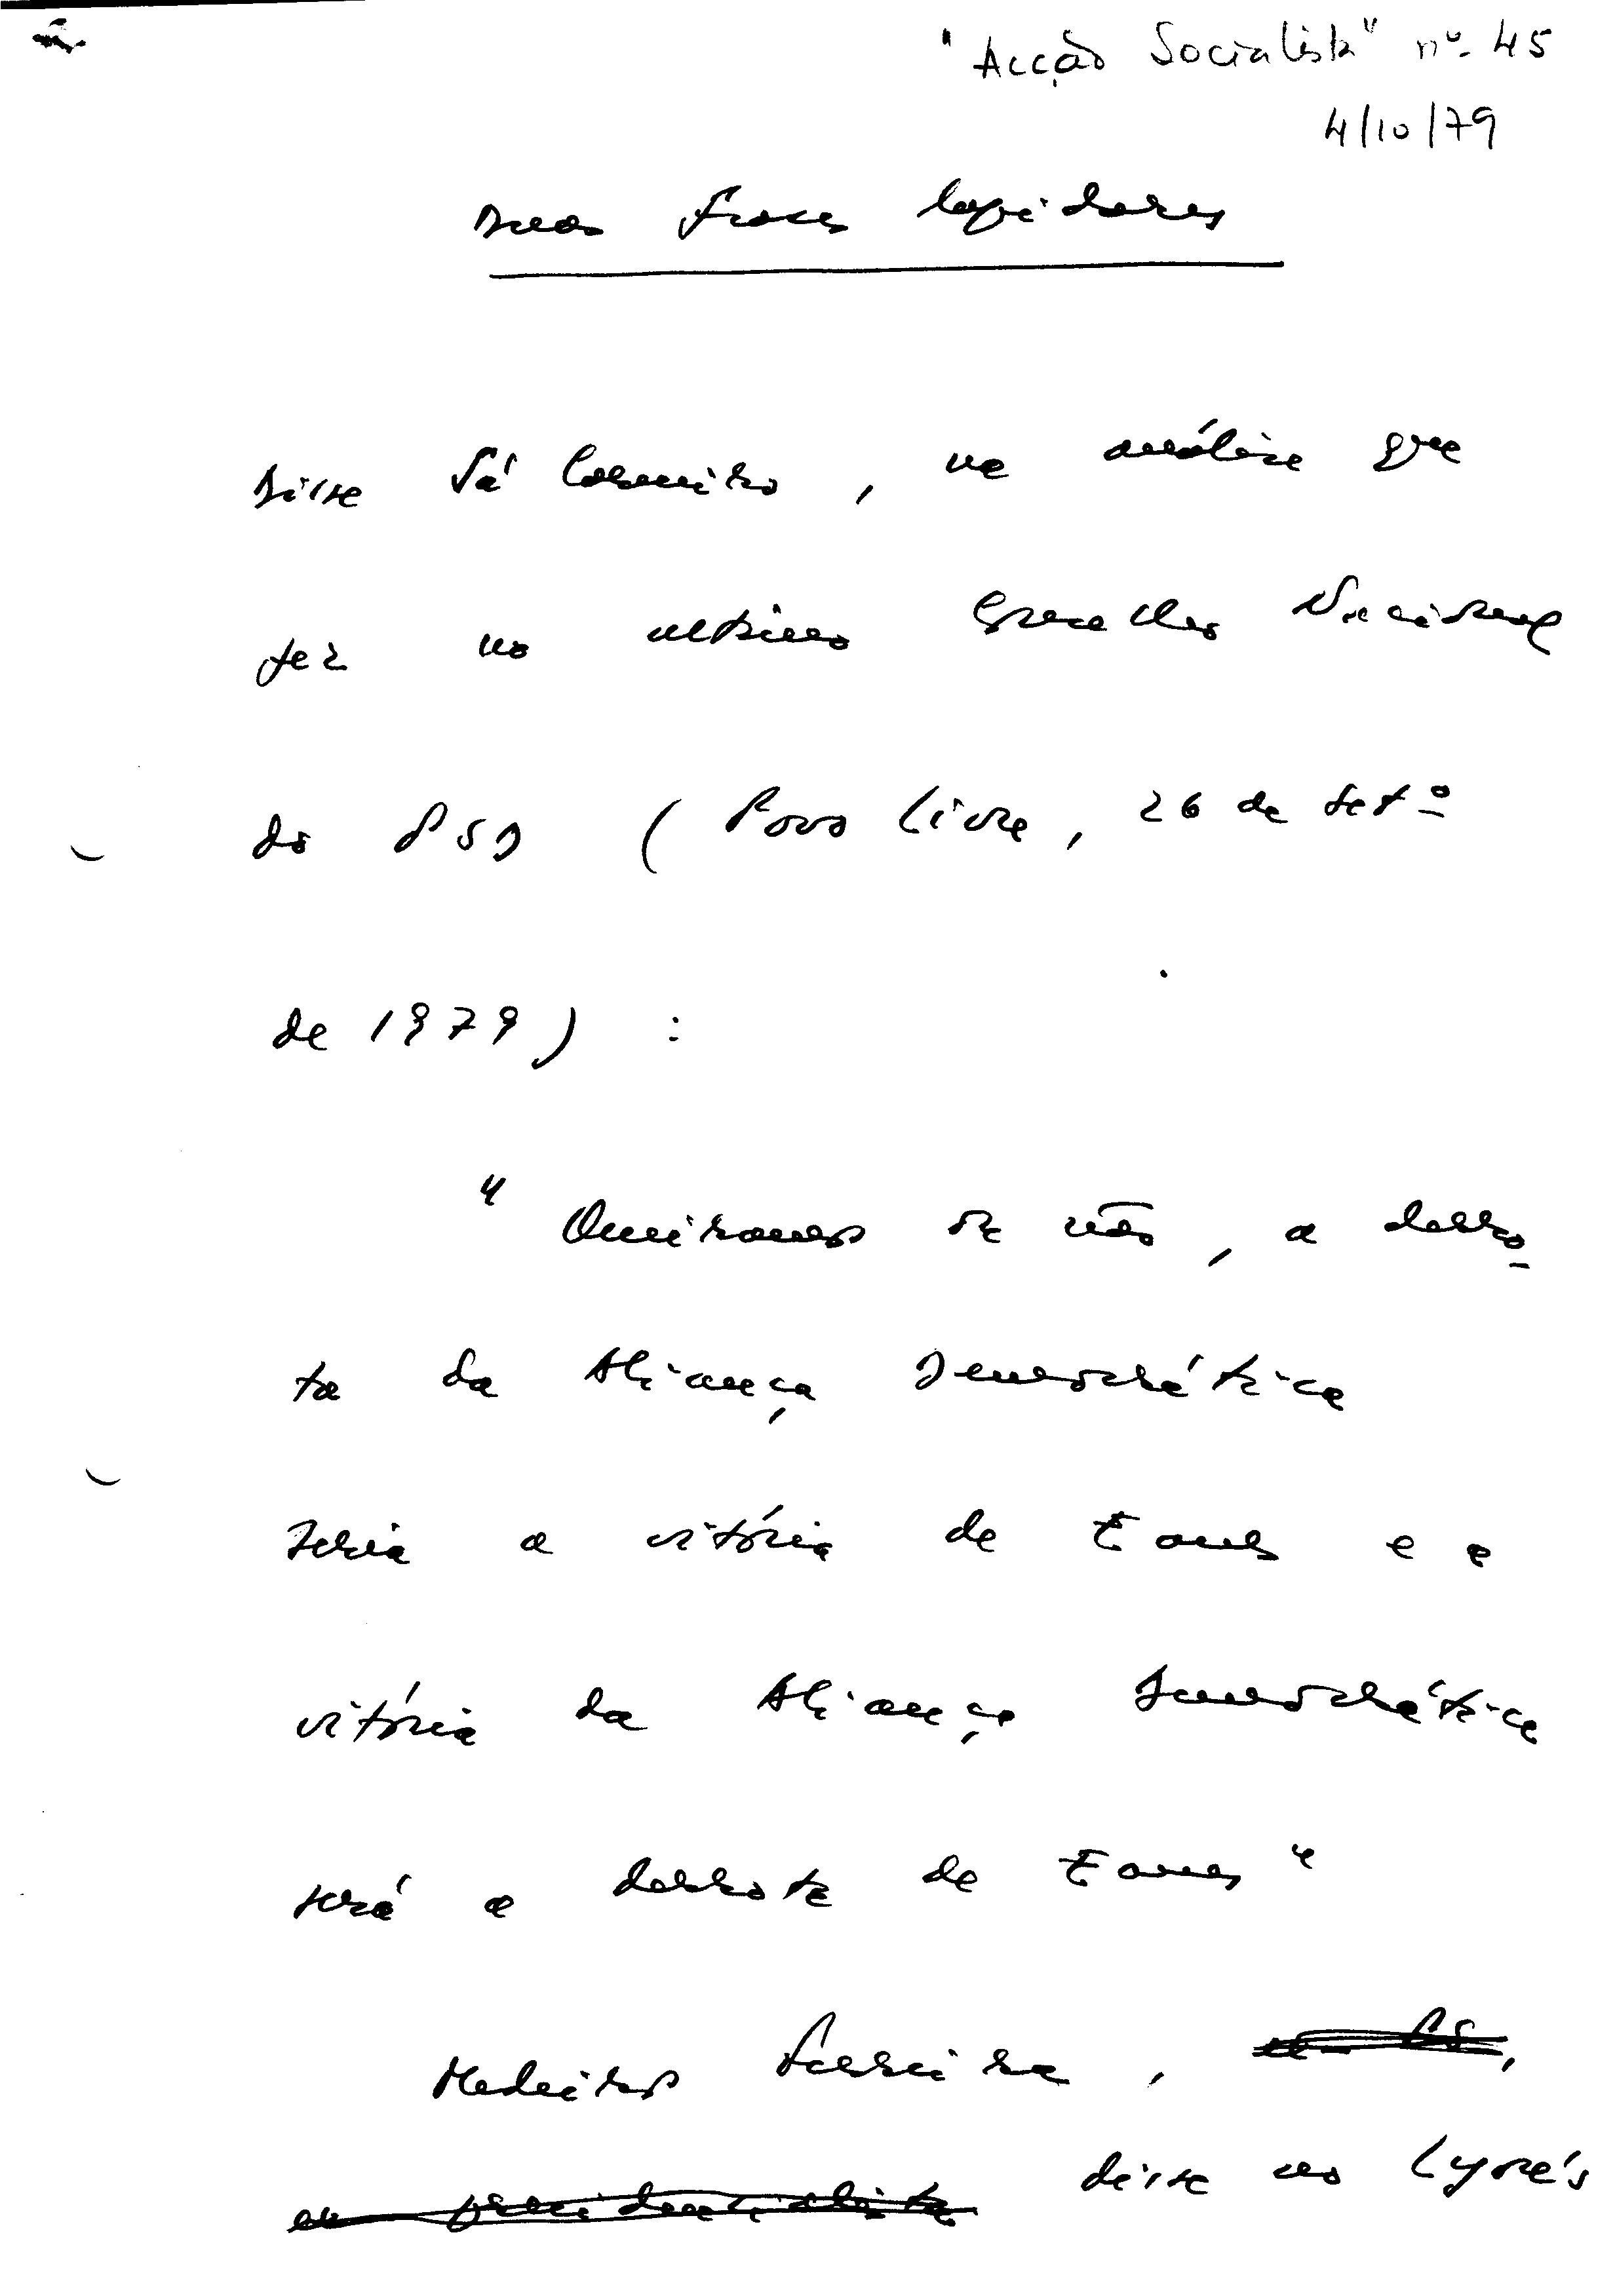 "Acção Socialista" nº 45
4/10/79
Duas frases lapidares
Disse Sá Carneiro, na análise que
fez no último Conselho Nacional
do PSD (Povo Livre, 26 de Setº
de 1979) :
"Queiramos ou não, a derro-
ta da Aliança Democrática
seria a vitória de Eanes e a
vitória da Aliança Democrática
será a derrota de Eanes"
Medeiros Ferreira,
disse no